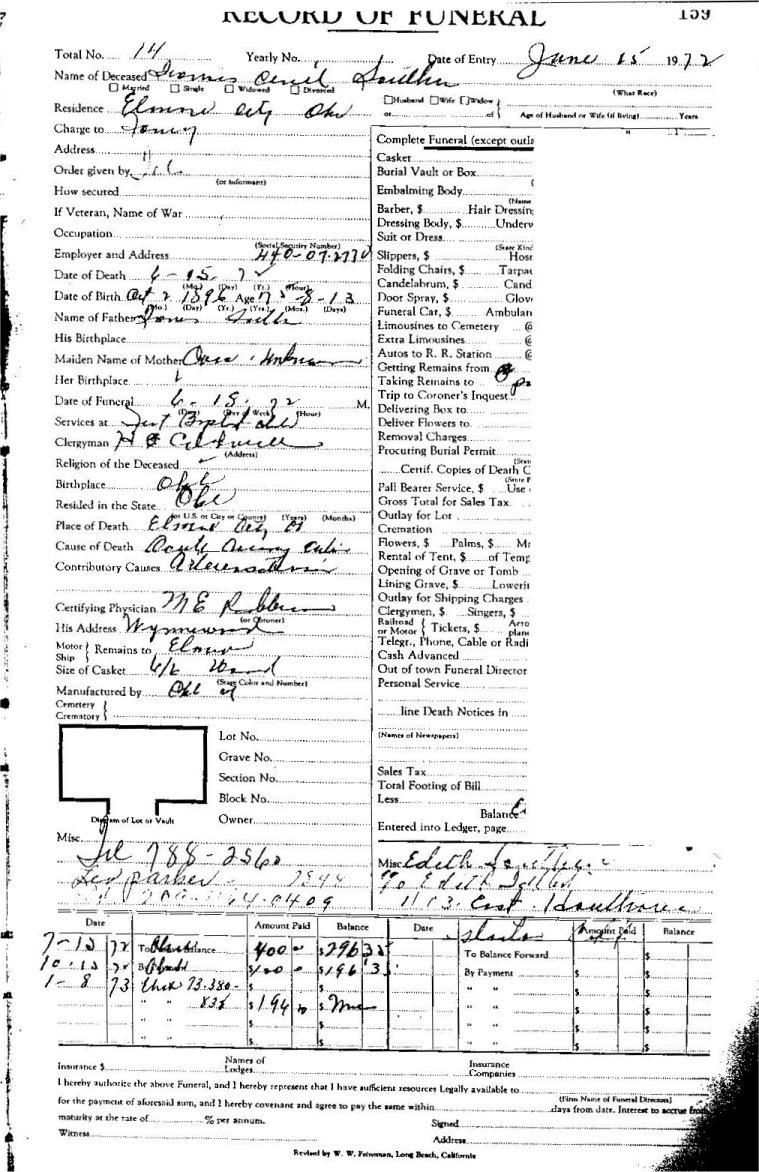 RECORD OF FUNERAL 159
Total No. 14 Yearly No. Date of Entry June 15 1972
Name of Deceased Cecil
Married Single Widowed Divorced
Residence Elmore City Okla
Charge to Family
Address "
Order given by
(or Informant)
How secured
If Veteran, Name of War
Occupation
(Social Security Number)
Employer and Address 440-07-2770
Date of Death 6-15-72
(Mo.) (Day) (Yr.) (Hour)
Date of Birth Oct 2 1896 Age 75-8-13
(Mo.) (Day) (Yr.) (Yrs.) (Mos.) (Days)
Name of Father
His Birthplace
Maiden Name of Mother Unknown
Her Birthplace
Date of Funeral 6-15-72 M.
(Date) (Day of Week) (Hour)
Services at First Baptist
Clergyman H
(Address)
Religion of the Deceased
Birthplace Okla
Resided in the State Okla
(or U.S. or City or County) (Years) (Months)
Place of Death Elmore City
Cause of Death
Contributory Causes
Certifying Physician M E Robberson
(or Coroner)
His Address Wynnewood
Motor Ship Remains to Elmore
Size of Casket 6/6
(State Color and Number)
Manufactured by Okla
Cemetery
Crematory
Lot No.
Grave No.
Section No.
Block No.
Owner
Diagram of Lot or Vault
Misc. Tel 788-2560
Leo Parker
0409
(What Race)
Husband Wife Widow
or of Age of Husband or Wife (if living) Years
Complete Funeral (except outla
Casket
Burial Vault or Box
Embalming Body
(Name
Barber, $ Hair Dressing
Dressing Body, $ Underw
Suit or Dress
(State Kind
Slippers, $ Hose
Folding Chairs, $ Tarpau
Candelabrum, $ Cand
Door Spray, $ Glove
Funeral Car, $ Ambulan
Limousines to Cemetery @
Extra Limousines @
Autos to R. R. Station @
Getting Remains from
Taking Remains to
Trip to Coroner's Inquest
Delivering Box to
Deliver Flowers to
Removal Charges
Procuring Burial Permit
(State
Certif. Copies of Death C
(State P
Pall Bearer Service, $ Use
Gross Total for Sales Tax
Outlay for Lot
Cremation
Flowers, $ Palms, $ M
Rental of Tent, $ of Temp
Opening of Grave or Tomb
Lining Grave, $ Lowerin
Outlay for Shipping Charges
Clergymen, $ Singers, $
Railroad or Motor Tickets, $ Aero plane
Telegr., Phone, Cable or Radi
Cash Advanced
Out of town Funeral Director
Personal Service
line Death Notices in
(Names of Newspapers)
Sales Tax
Total Footing of Bill
Less
Balance
Entered into Ledger, page
Misc. Edith
% Edith
1103 East
Date Amount Paid Balance Date Amount Paid Balance
7-13 72 To Balance 400 $296 35 To Balance Forward $
10-13 72 By $100 $196 35 By Payment $ $
1-8 73 Check 73-380- $ $ " " $ $
" " 838 $196 $ " " $ $
" " $ $ " " $ $
" " $ $ " " $ $
Insurance $ Names of Lodges Insurance Companies
I hereby authorize the above Funeral, and I hereby represent that I have sufficient resources Legally available to
(Firm Name of Funeral Directors)
for the payment of aforesaid sum, and I hereby covenant and agree to pay the same within days from date. Interest to accrue from
maturity at the rate of % per annum. Signed
Witness Address
Revised by W. W. Feineman, Long Beach, California